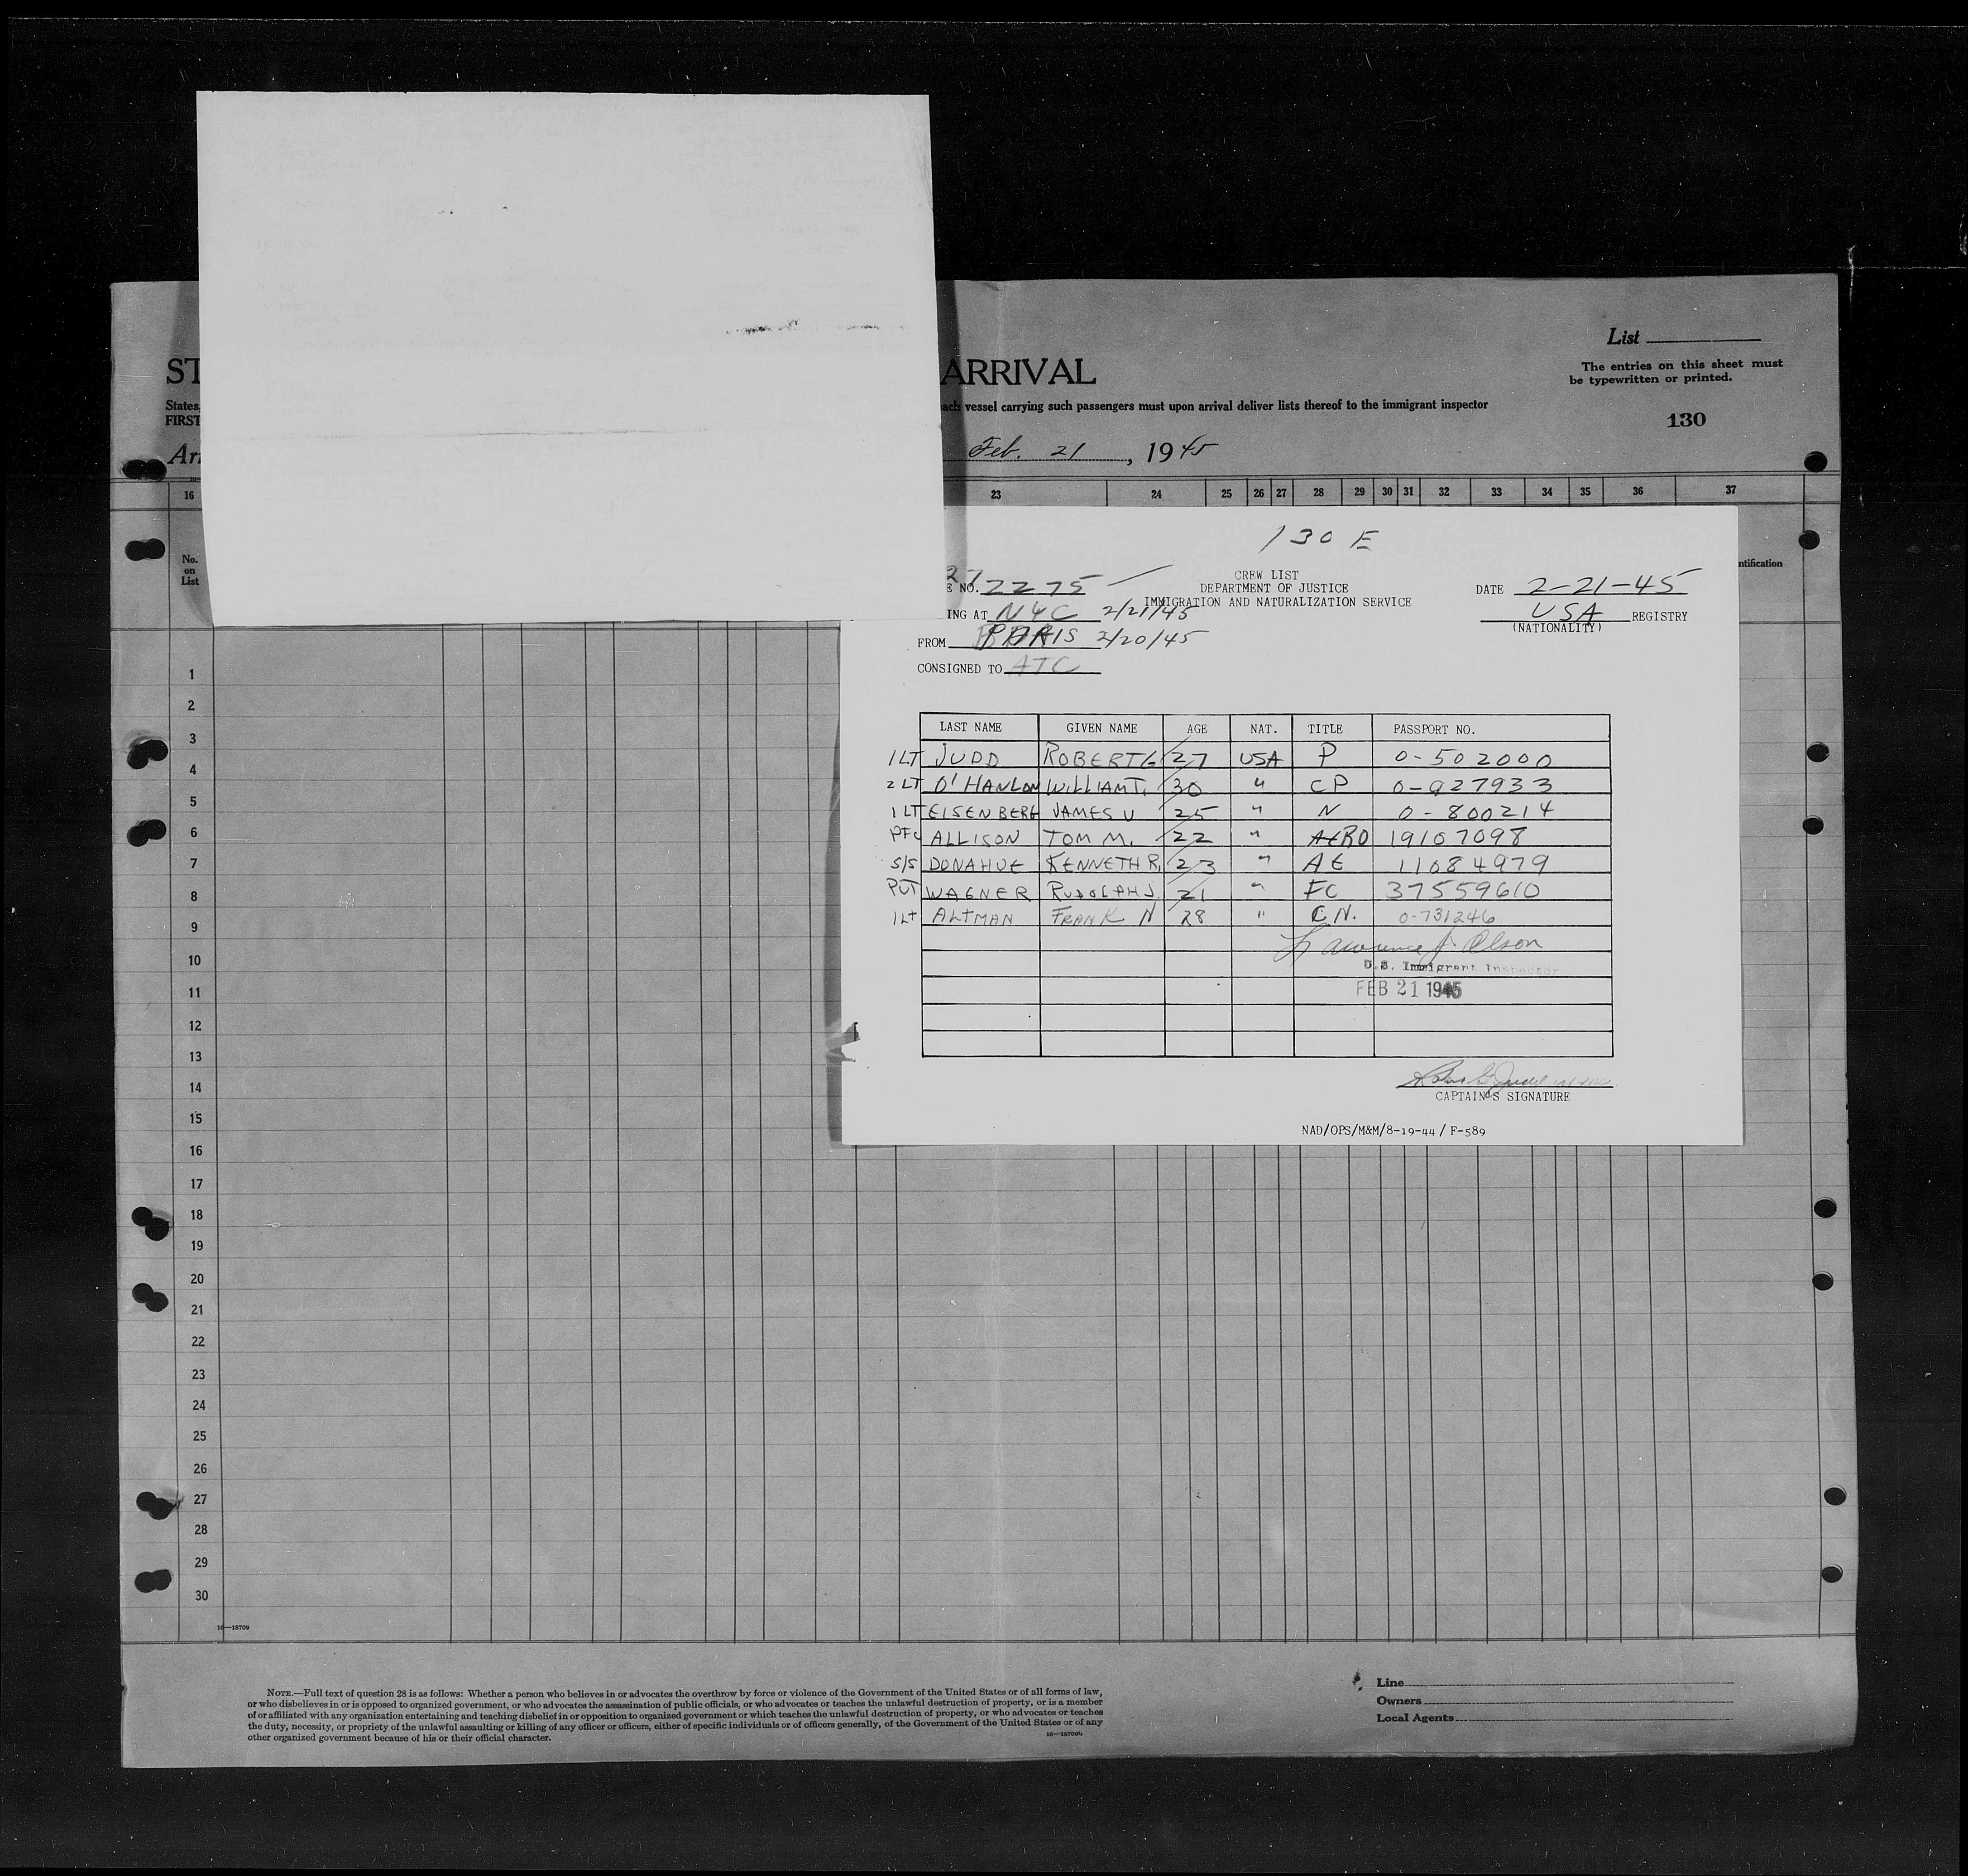 List
The entries on this sheet must
be typewritten or printed.
ST ARRIVAL
States, ach vessel carrying such passengers must upon arrival deliver lists thereof to the immigrant inspector
FIRST
130
Arr Feb. 21, 1945
16 23 24 25 26 27 28 29 30 31 32 33 34 35 36 37
No.
on
List
ntification
130 E
27
E NO. 2275
CREW LIST
DEPARTMENT OF JUSTICE
IMMIGRATION AND NATURALIZATION SERVICE
DATE 2-21-45
USA REGISTRY
(NATIONALITY)
ING AT NYC 2/21/45
FROM PARIS 2/20/45
CONSIGNED TO ATC
LAST NAME GIVEN NAME AGE NAT. TITLE PASSPORT NO.
1LT JUDD ROBERT G 27 USA P 0-502000
2LT O'HANLON WILLIAM T. 30 " CP 0-927933
1LT EISENBERG JAMES V 25 " N 0-800214
PFC ALLISON TOM M. 22 " AERO 19107098
S/S DONAHUE KENNETH R. 23 " AE 11084979
PVT WAGNER RUDOLPH J. 21 " FC 37559610
1LT ALTMAN FRANK N 28 " CN. 0-731246
Lawrence J. Olson
U.S. Immigrant Inspector
FEB 21 1945
CAPTAIN'S SIGNATURE
NAD/OPS/M&M/8-19-44 / F-589
1
2
3
4
5
6
7
8
9
10
11
12
13
14
15
16
17
18
19
20
21
22
23
24
25
26
27
28
29
30
16—18709
NOTE.—Full text of question 28 is as follows: Whether a person who believes in or advocates the overthrow by force or violence of the Government of the United States or of all forms of law,
or who disbelieves in or is opposed to organized government, or who advocates the assassination of public officials, or who advocates or teaches the unlawful destruction of property, or is a member
of or affiliated with any organization entertaining and teaching disbelief in or opposition to organized government or which teaches the unlawful destruction of property, or who advocates or teaches
the duty, necessity, or propriety of the unlawful assaulting or killing of any officer or officers, either of specific individuals or of officers generally, of the Government of the United States or of any
other organized government because of his or their official character.
16—18709b
Line
Owners
Local Agents